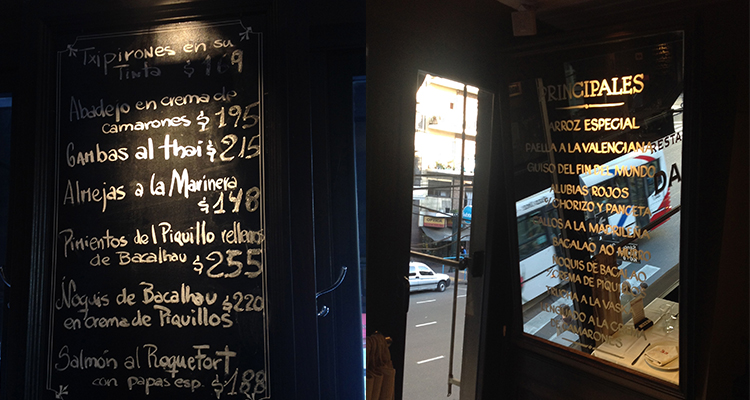 Txipirones en su
Tinta $169
Abadejo en crema de
camarones $195
Gambas al thai $215
Almejas a la Marinera
$148
Pimientos del Piquillo rellenos
de Bacalhau $255
Ñoquis de Bacalhau $220
en crema de Piquillos
Salmón al Roquefort
con papas esp. $188
PRINCIPALES
ARROZ ESPECIAL
PAELLA A LA VALENCIANA
GUISO DEL FIN DEL MUNDO
ALUBIAS ROJOS
CHORIZO Y PANCETA
CALLOS A LA MADRILEÑA
BACALAO AO
ÑOQUIS DE BACALAO
CREMA DE
A LA
A LA
RESTA
DA